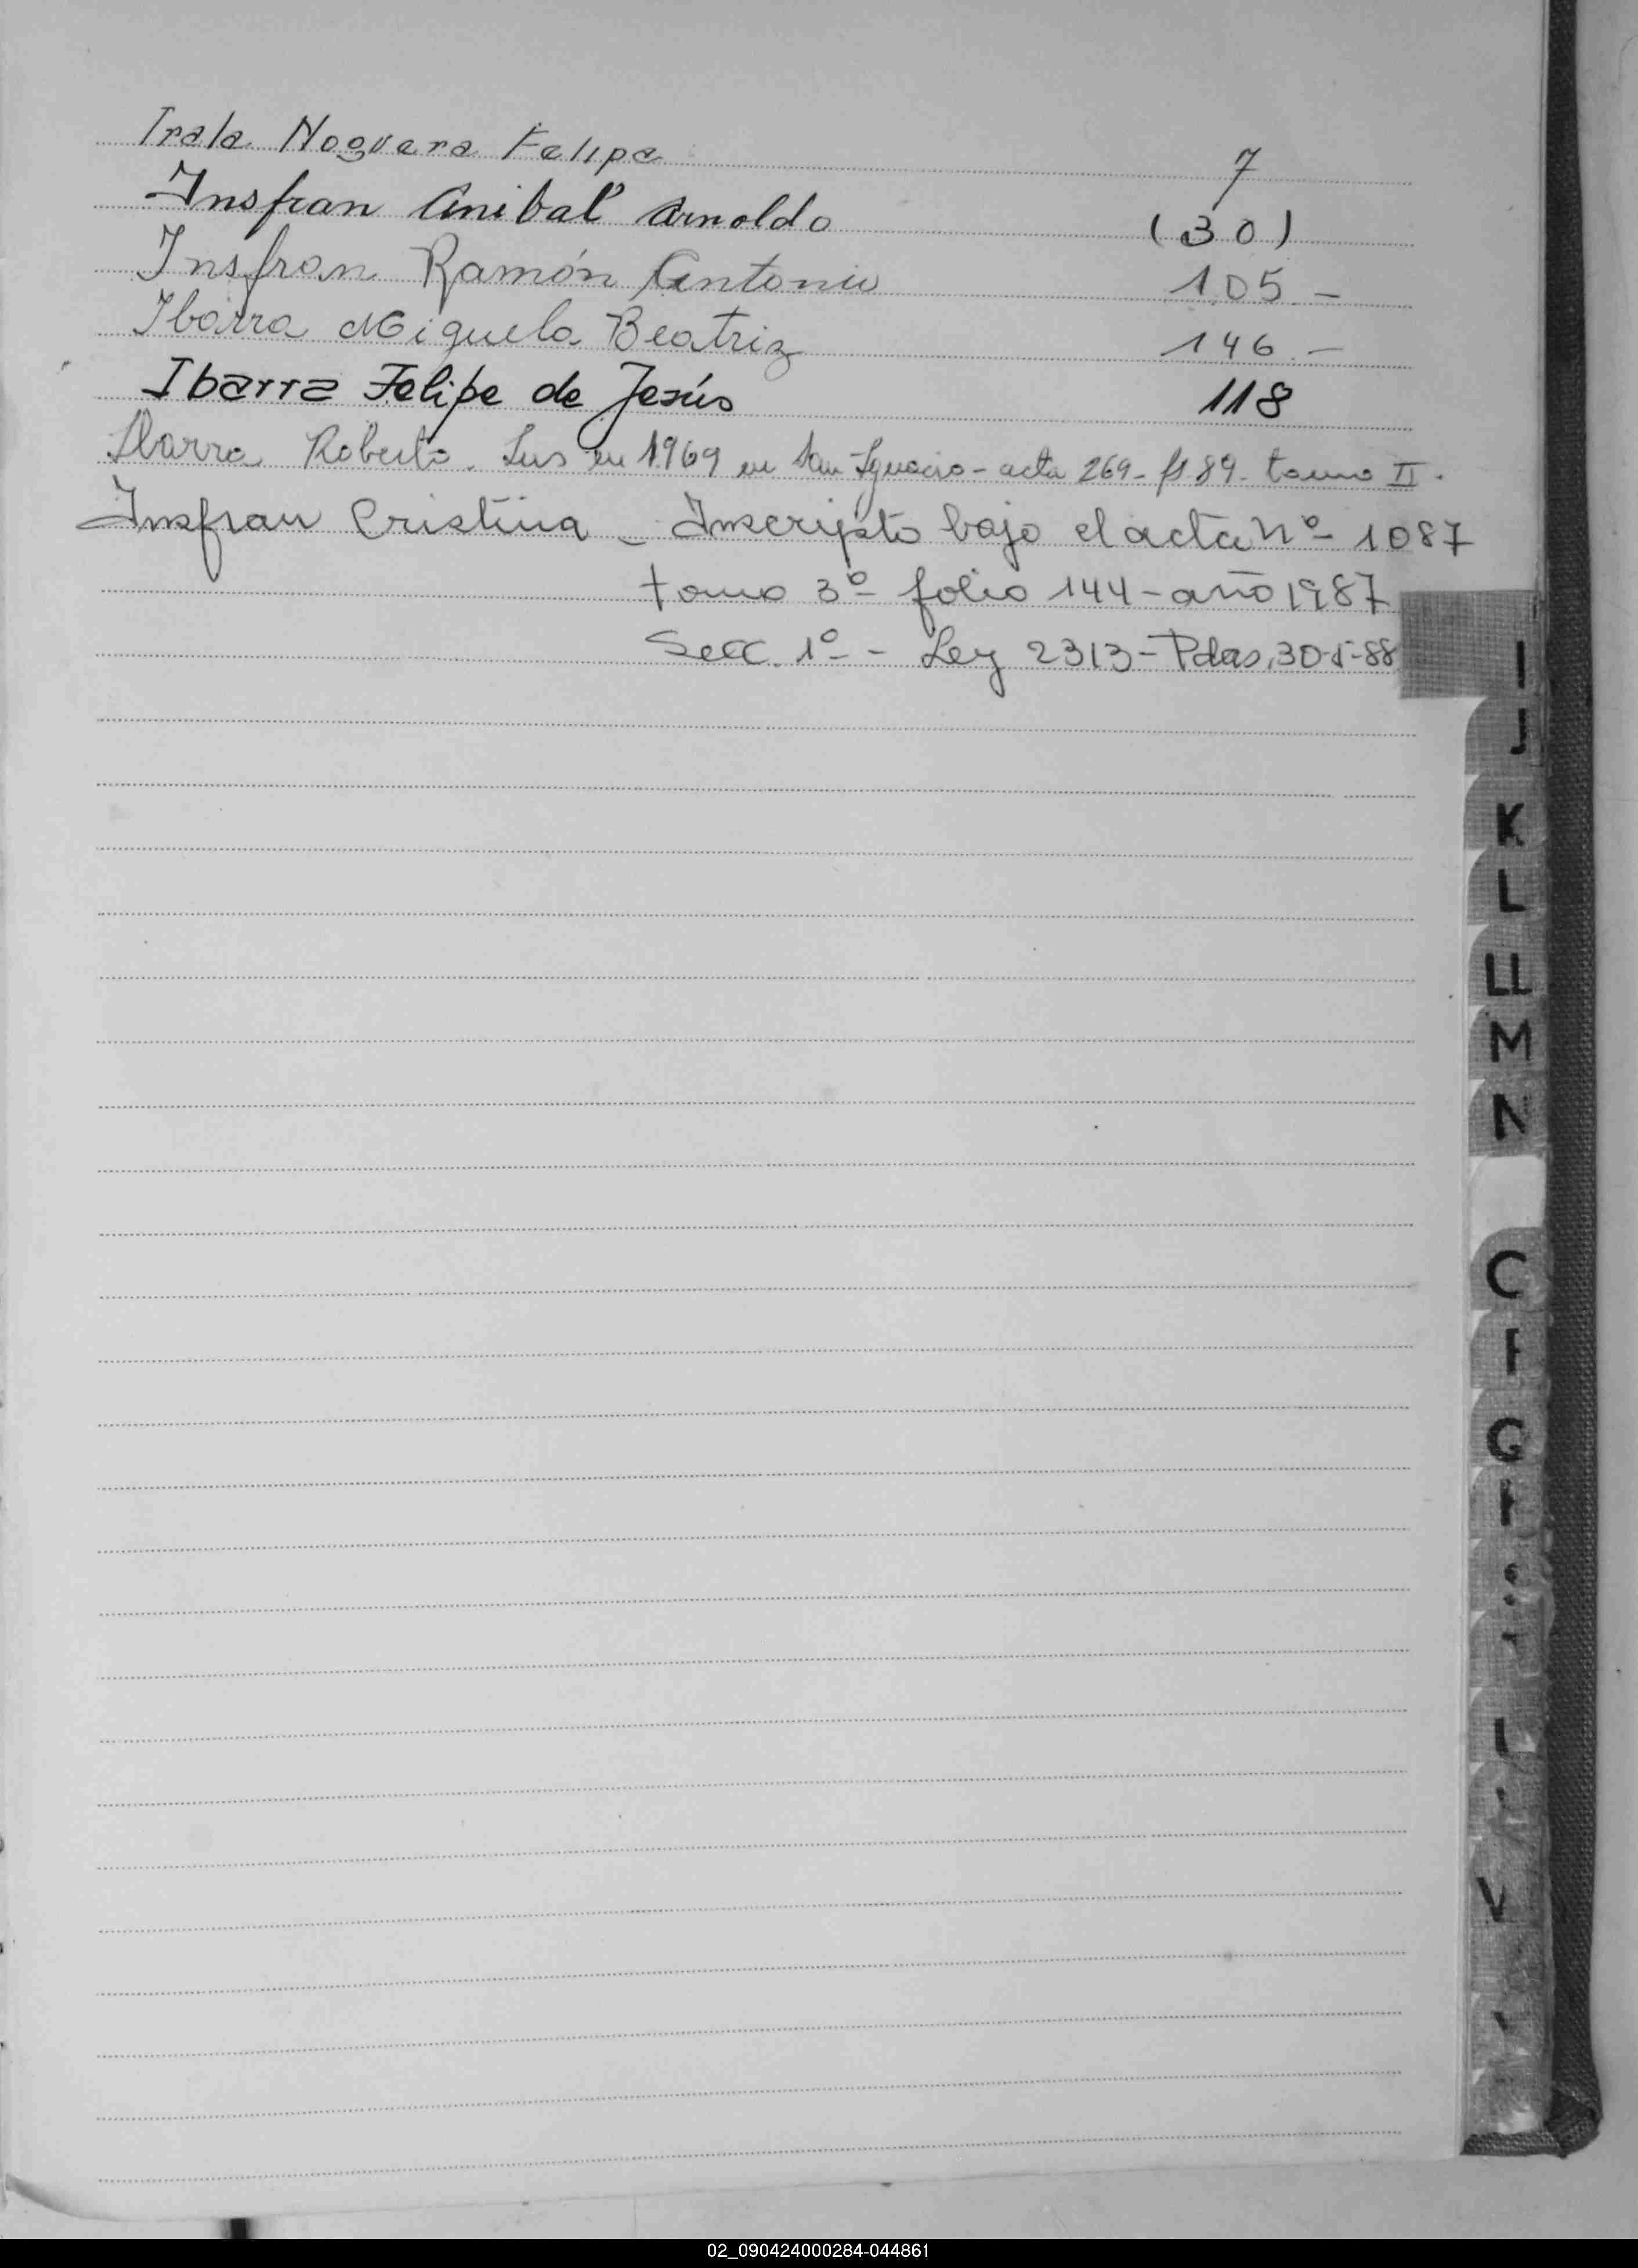 Irala Noguera Felipa 7
Insfran Anibal Arnoldo (30)
Insfran Ramón Antonio 105 -
Ibarra Miguela Beatriz 146 -
Ibarra Felipe de Jesús 118
Ibarra Roberto. Ins en 1969 en San Ignacio - acta 269 - fs 89 - tomo II.
Insfran Cristina - Inscripto bajo el acta Nº 1087
tomo 3º folio 144 - año 1987
Secc. 1º - Ley 2313 - Pdas, 30-1-88
I
J
K
L
LL
M
N
C
G
V
02_090424000284-044861